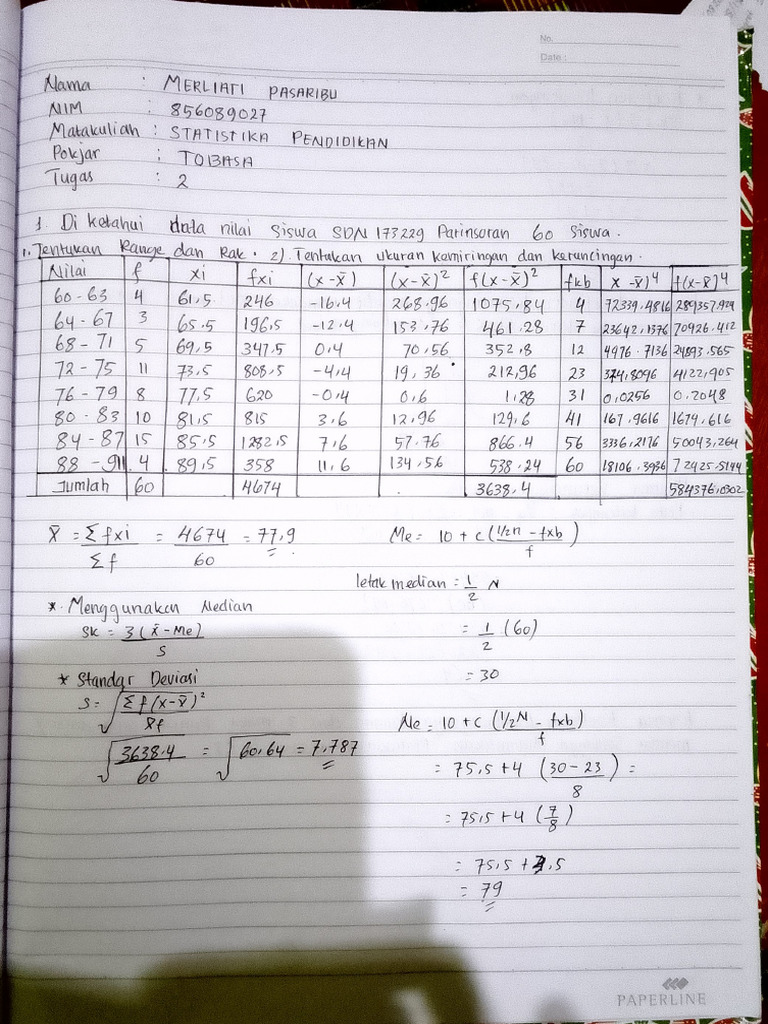 No.
Date :
Nama : MERLIATI PASARIBU
NIM : 856089027
Matakuliah : STATISTIKA PENDIDIKAN
Pokjar : TOBASA
Tugas : 2
1. Di ketahui data nilai siswa SDN 173229 Parinsoran 60 siswa.
1. Tentukan Range dan Rak. 2). Tentukan ukuran kemiringan dan keruncingan.
Nilai f xi fxi (x-x̄) (x-x̄)² f(x-x̄)² fkb x-x̄)⁴ f(x-x̄)⁴
60-63 4 61,5 246 -16.4 268.96 1075,84 4 72339.4816 289357.924
64-67 3 65.5 196,5 -12.4 153,76 461.28 7 23642,1376 70926.412
68-71 5 69,5 347,5 0,4 70,56 352,8 12 4976.7136 24893.565
72-75 11 73,5 808,5 -4,4 19,36 212,96 23 374,8096 4122,905
76-79 8 77,5 620 -0,4 0,6 1,28 31 0,0256 0,2048
80-83 10 81,5 815 3,6 12,96 129,6 41 167,9616 1679,616
84-87 15 85,5 1282,5 7,6 57,76 866.4 56 3336,2176 50043,264
88-91 4 89,5 358 11,6 134,56 538,24 60 18106,3936 72425.5144
Jumlah 60 4674 3638.4 584376,0302
x̄ = Σfxi / Σf = 4674 / 60 = 77,9
Me = 10 + c (1/2n - fxb / f)
letak median = 1/2 N
* Menggunakan Median
Sk = 3(x̄ - Me) / s
= 1/2 (60)
= 30
* Standar Deviasi
S = √Σf(x-x̄)² / Σf
√3638.4 / 60 = √60,64 = 7,787
Me = 10 + c (1/2N - fxb / f)
= 75,5 + 4 (30-23 / 8) =
= 75,5 + 4 (7/8)
= 75,5 + 3,5
= 79
PAPERLINE